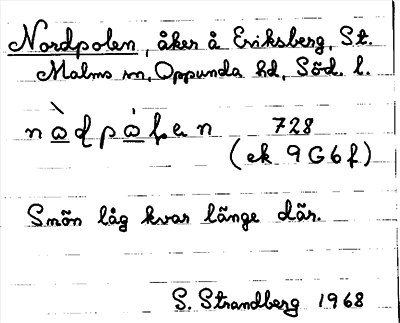 Nordpolen, åker å Eriksberg, St.
Malms sn, Oppunda hd, Söd. l.
nɷ̀ɖpɷ̀ɭen 728
(ek 9G6f)
Snön låg kvar länge där.
S. Strandberg 1968